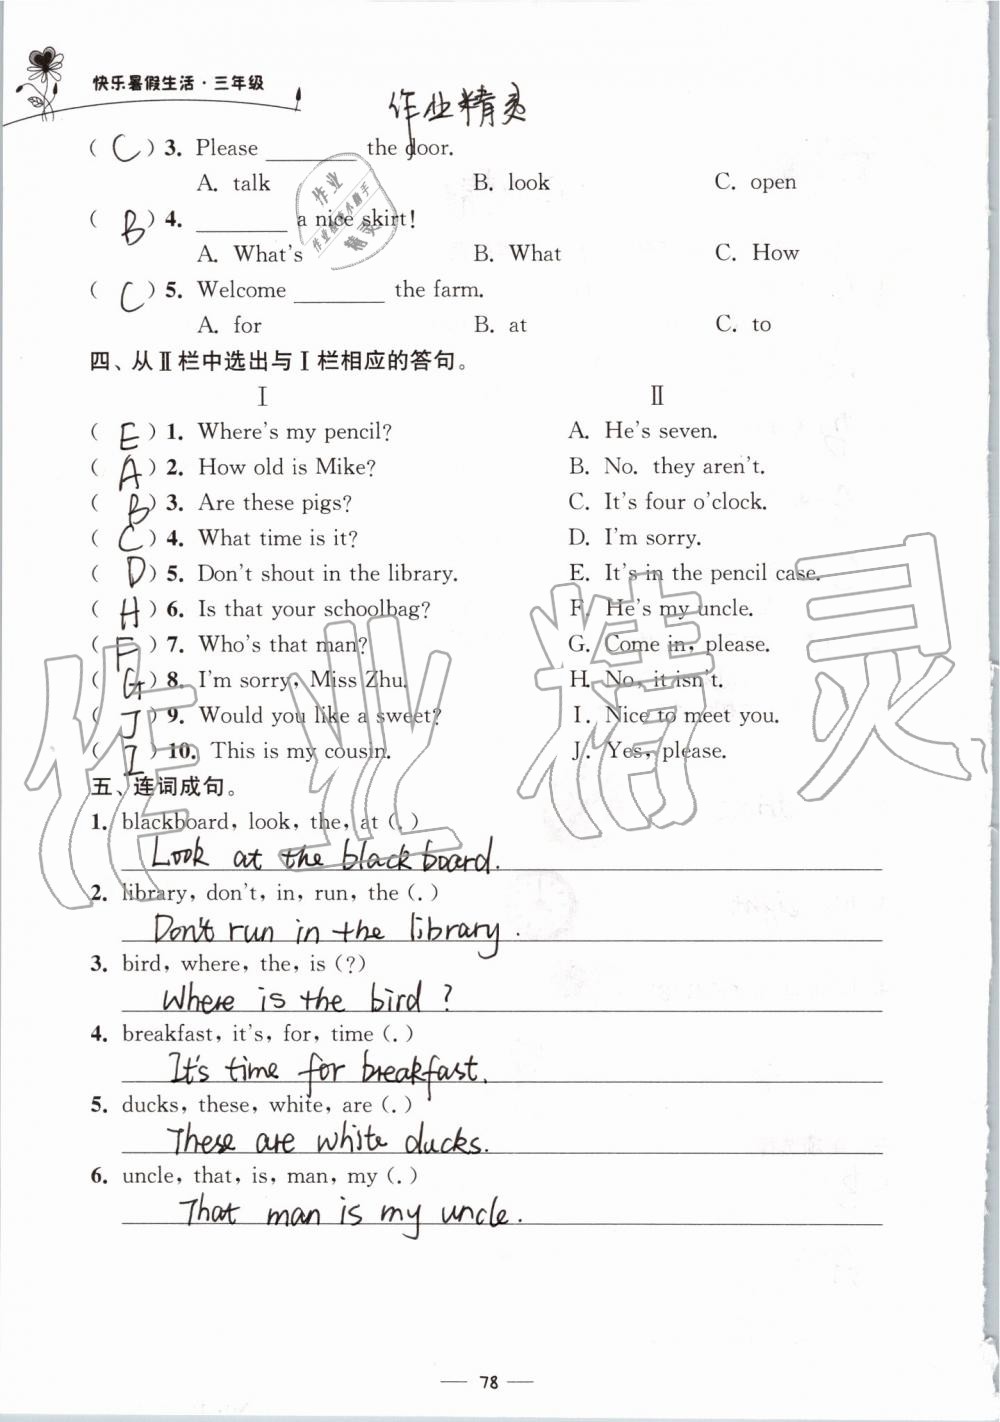 快乐暑假生活·三年级
作业精灵
( C ) 3. Please ________ the door.
A. talk B. look C. open
( B ) 4. ________ a nice skirt!
A. What's B. What C. How
( C ) 5. Welcome ________ the farm.
A. for B. at C. to
四、从Ⅱ栏中选出与Ⅰ栏相应的答句。
Ⅰ Ⅱ
( E ) 1. Where's my pencil? A. He's seven.
( A ) 2. How old is Mike? B. No. they aren't.
( B ) 3. Are these pigs? C. It's four o'clock.
( C ) 4. What time is it? D. I'm sorry.
( D ) 5. Don't shout in the library. E. It's in the pencil case.
( H ) 6. Is that your schoolbag? F. He's my uncle.
( F ) 7. Who's that man? G. Come in, please.
( G ) 8. I'm sorry, Miss Zhu. H. No, it isn't.
( J ) 9. Would you like a sweet? I. Nice to meet you.
( I ) 10. This is my cousin. J. Yes, please.
五、连词成句。
1. blackboard, look, the, at (.)
Look at the blackboard.
2. library, don't, in, run, the (.)
Don't run in the library.
3. bird, where, the, is (?)
Where is the bird?
4. breakfast, it's, for, time (.)
It's time for breakfast.
5. ducks, these, white, are (.)
These are white ducks.
6. uncle, that, is, man, my (.)
That man is my uncle.
— 78 —
作业精灵